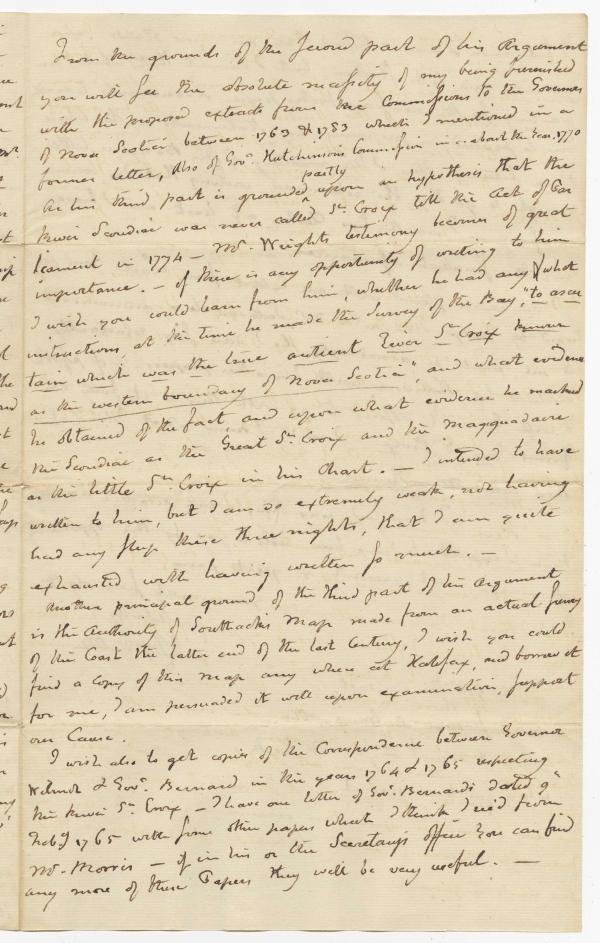 From the grounds of the second part of his Argument
you will see the absolute necessity of my being furnished
with the proposed extracts from the Commissions to the Governors
of Nova Scotia between 1763 & 1783 which I mentioned in a
former letter, Also of Govr. Hutchinsons Commission in or about the Year 1770
As his third part is grounded partly upon an hypothesis that the
River Scoudiac was never called St. Croix till the Act of Par
liament in 1774 – Mr. Wrights testimony becomes of great
importance. – If there is any opportunity of writing to him
I wish you could learn from him, whether he had any & what
instructions, at the time he made the Survey of the Bay, "to ascer
tain which was the true antient River St. Croix known
as the western boundary of Nova Scotia", and what evidence
he obtained of the fact, and upon what evidence he marked
the Scoudiac as the Great St. Croix and the Magaguadavic
as the little St. Croix in his Chart. – I intended to have
written to him, but I am so extremely weak, not having
had any sleep these three nights, that I am quite
exhausted with having written so much. –
Another principal ground of the third part of his Argument
is the Authority of Southacks Map made from an actual Survey
of the Coast the latter end of the last Century, I wish you could
find a Copy of this map any where at Halifax, and borrow it
for me, I am persuaded it will upon examination, support
our Cause.
I wish also to get copies of the Correspondence between Governor
Wilmot & Govr. Bernard in the years 1764 & 1765 respecting
the River St. Croix – I have one letter of Govr. Bernards dated 9th
Feby 1765 with some other papers which I think I rec'd from
Mr. Morris – if in his or the Secretarys office You can find
any more of these Papers they will be very useful. –